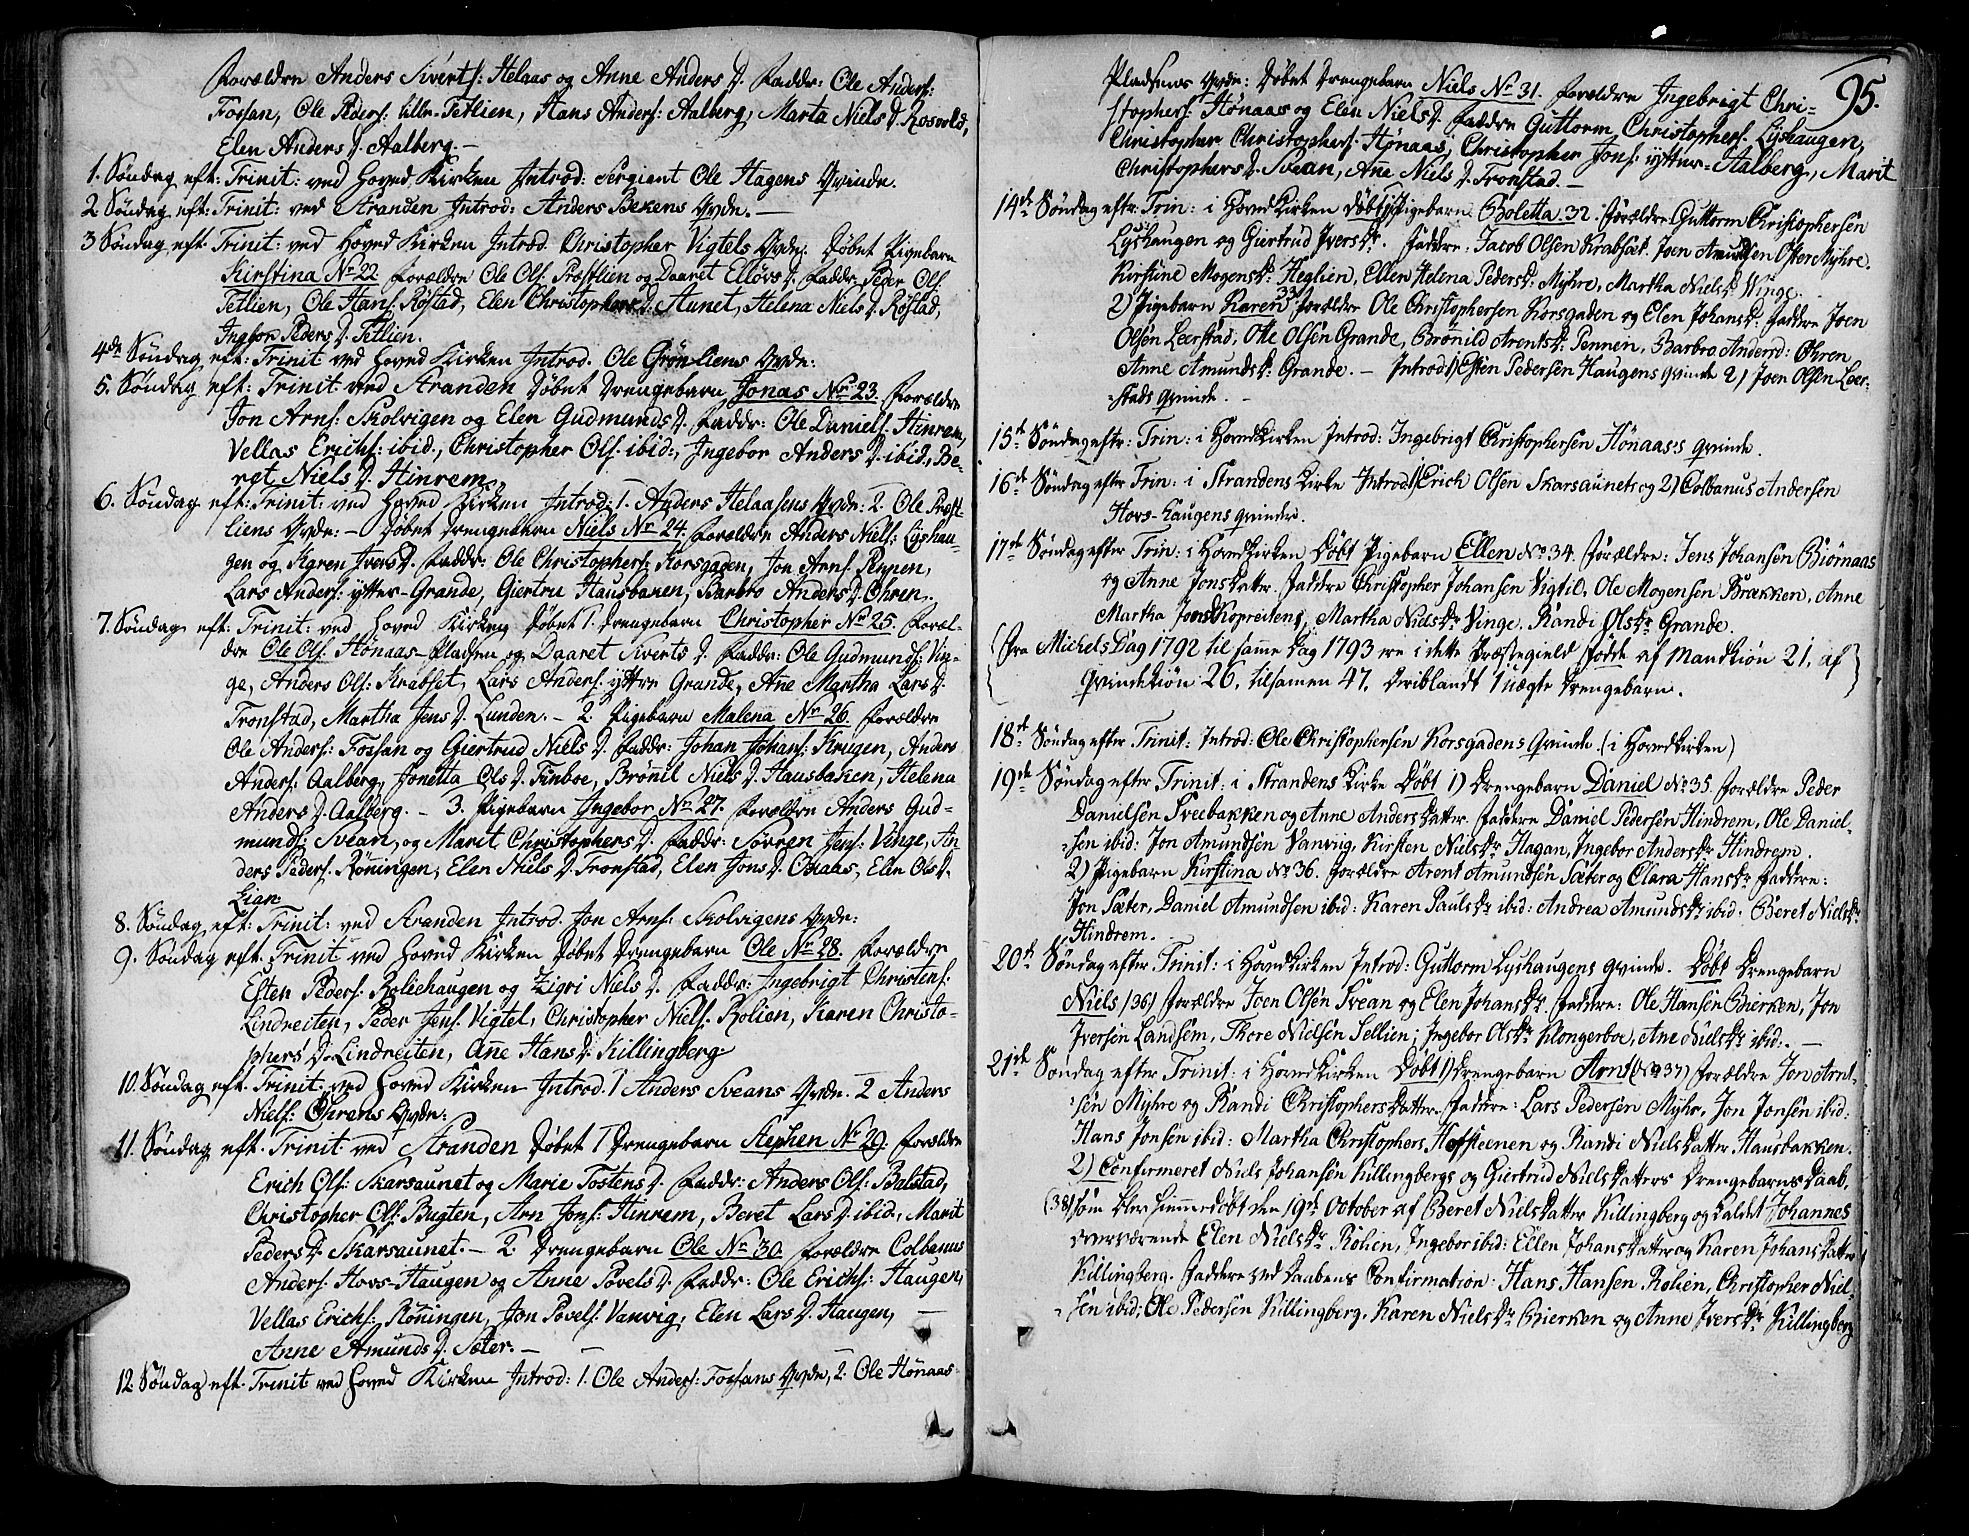 Forældre Anders Siverts: Helaas og Anne Anders D. Faddr: Ole Anders:
Fossan, Ole Peders: lille-Tetlien, Hans Anders: Aalberg, Marta Niels D. Rosvold,
Elen Anders D. Aalberg. —
1. Søndag eft: Trinit: ved Hoved Kirken Introd: Sergiant Ole Hagens Qvinde.
2 Søndag eft: Trinit: ved Stranden Introd: Anders Bekens Qvde. —
3 Søndag eft. Trinit: ved Hoved Kirken Introd. Christopher Vigtels Qvde: Døbet Pigebarn
Kirstina No 22. Forældre Ole Ols: Præstlien og Daaret Ellevs D. Faddr: Peder Ols:
Tetlien, Ole Hans: Røstad, Elen Christophers D. Aunet, Helena Niels D. Røstad,
Ingbor Peders D. Tetlien.
4de Søndag eft: Trinit ved Hoved Kirken Introd. Ole Grönliens Qvde:
5. Søndag eft: Trinit ved Stranden Døbet Drengebarn Jonas No 23. Forældre
Jon Arns: Skolvigen og Elen Gudmunds D. Faddr: Ole Daniels: Hinrem,
Vellas Erichs: ibid., Christopher Ols. ibid:, Ingebor Anders D. ibid., Be-
ret Niels D. Hinrem.
6. Søndag eft: Trinit: ved Hoved Kirken Introd: 1. Anders Helaasens Qvde: 2. Ole Præst-
liens Qvde: — Døbet Drengebarn Niels No 24. Forældre Anders Niels: Lyshau-
gen og Karen Ivers D. Faddr: Ole Christophers: Korsgaden, Jon Arns. Pennen,
Lars Anders: ytter-Grande, Giertru Hausbaken, Barbro Anders D. Øhren.
7. Søndag eft. Trinit: ved Hoved Kirken Døbet 1. Drengebarn Christopher No 25. Foræl-
dre Ole Ols. Hönaas-Pladsen og Daaret Siverts D. Faddr: Ole Gudmunds: Vin-
ge, Anders Ols: Krabset, Lars Anders. yttre Grande, Ane Martha Lars D.
Tronstad, Martha Jens D. Lunden. — 2. Pigebarn Malena No 26. Forældre
Ole Anders: Fossan og Giertrud Niels D. Faddr: Johan Johans: Krugen, Anders
Anders: Aalberg, Jonetta Ols D. Finboe, Brönil Niels D. Hausbaken, Helena
Anders D. Aalberg. — 3. Pigebarn Ingebor No 27. Forældre Anders Gud-
munds: Svean, og Marit Christophers D. Faddr: Sörren Jens: Vinge, An
ders Peders. Röningen, Elen Niels D. Tronstad, Elen Jons D. Oxaas, Elen Ols D.
Lian.
8. Søndag eft: Trinit: ved Stranden Introd. Jon Arns: Skolvigens Qvde:
9. Søndag eft. Trinit ved Hoved Kirken Døbet Drengebarn Ole No 28. Forældre
Esten Peders. Roliehaugen og Zigri Niels D. Faddr: Ingebrigt Christens:
Lindreiten, Peder Jens. Vigtel, Christopher Niels: Rolien, Karen Christo-
phers D. Lindreiten, Anne Hans D. Killingberg
10. Søndag eft. Trinit: ved Hoved Kirken Introd. 1 Anders Sveans Qvde. 2 Anders
Niels: Öhrens Qvde:
11. Søndag eft. Trinit: ved Stranden Døbet 1 Drengebarn Stephen No 29. Forældre
Erich Ols: Skarsaunet og Marie Tostens D. Faddr: Anders Ols: Balstad,
Christopher Ols: Bugten, Arn Jons: Hinrem, Beret Lars D. ibid., Marit
Peders D. Skarsaunet. — 2. Drengebarn Ole No 30. Forældre Colbanus
Anders: Hovs-Haugen og Anne Povels D. Faddr: Ole Erichs: Haugen,
Vellas Erichs: Röningen, Jon Povels. Vanvig, Elen Lars D. Haugen,
Anne Amunds D. Sæter. —
12 Søndag eft. Trinit ved Hoved Kirken Introd: 1. Ole Anders: Fossans Qvde, 2. Ole Hönaas-
95.
Pladsens Qvde: Döbet Drengebarn Niels No 31. Forældre Ingebrigt Chri-
stophers: Hönaas og Elen Niels D. Faddre Guttorm Christophers. Lyshaugen,
Christopher Christophers. Hönaas, Christopher Jons: ytter-Aalberg, Marit
Christophers D. Svean, Ane Niels D. Tronstad. —
14de Søndag eftr: Trin: i Hovedkirken döbt Pigebarn Boletta. 32. Forældre Guttorm Christophersen
Lyshaugen og Giertrud Ivers Dr. Faddre: Jacob Olsen Krabset. Joen Amundsen Öster Myhre.
Kirstine Mogens Dr. Heglien, Ellen Helena Peders Dr. Myhre, Martha Niels Dr. Winge.
2) Pigebarn Karen 33 Forældre Ole Christophersen Korsgaden og Elen Johans Dr. Faddre Joen
Olsen Leerstad, Ole Olsen Grande, Brönild Arents Dr. Pennen, Barbro Andersd: Öhren
Anne Amunds Dr. Grande. — Introd 1) Esten Pedersen Haugens qvinde 2) Joen Olsen Leer-
stads qvinde. —
15de Söndag eftr: Trin: i Hovedkirken Introd: Ingebrigt Christophersen Hönaas's qvinde.
16de Søndag efter Trin: i Strandens Kirke Introd 1) Erich Olsen Skarsaunets og 2) Colbanus Andersen
Hovs-Haugens qvinder.
17de Søndag efter Trin: i Hovedkirken Döbt Pigebarn Ellen No 34. Forældre: Jens Johansen Biörnaas
og Anne Jons Datter. Faddre Christopher Johansen Vigtil, Ole Mogensen Brækken, Anne
Martha Jons Dr Kopreitens, Martha Niels Dr. Vinge, Randi Ols Dr. Grande.
(Fra Michels Dag 1792 til samme Dag 1793 ere i dette Præstegield födte af Mandkiön 21, af
Qvindekiön 26, tilsamen 47. Deriblandt 1 uægte Drengebarn.
18de Søndag efter Trinit: Introd: Ole Christophersen Korsgadens qvinde. (i Hovedkirken)
19de Søndag efter Trinit: i Strandens Kirke Döbt 1) Drengebarn Daniel No 35. Forældre Peder
Danielsen Sveebakken og Anne Anders Datter. Faddere Daniel Pedersen Hindrem, Ole Daniel-
sen ibid: Jon Amundsen Vanviig, Kirsten Niels Dr Hagan, Ingebor Anders Dr Hindrem.
2) Pigebarn Kirstina No 36. Forældre Arent Amundsen Sæter og Clara Hans Dr Faddere:
Jon Sæter, Daniel Amundsen ibid: Karen Pauls Dr ibid: Andrea Amunds Dr ibid. Beret Niels Dr
Hindrem.
20de Søndag efter Trinit: i Hovedkirken Introd: Guttorm Lyshaugens qvinde. Döbt Drengebarn
Niels (36) Forældre Joen Olsen Svean og Elen Johans Dr. Faddere: Ole Hansen Bierken, Jon
Iversen Landsem, Thore Nielsen Sellien, Ingebor Ols Dr. Klongerboe, Ane Niels Dr ibid:. —
21de Søndag efter Trinit: i Hovedkirken Döbt 1) Drengebarn Arnt (No 37) Forældre Jon Arnt-
sen Myhre og Randi Christophers Datter. Faddere: Lars Pedersen Myhr, Jon Jonsen ibid:
Hans Jonsen ibid: Martha Christophers Hofsteenen og Randi Niels Datter Hausbakken.
2) Confirmeret Niels Johansen Killingbergs og Giertrud Niels Datters Drengebarns Daab,
(38) som blev hjemmedöbt den 19de October af Beret Niels Datter Killingberg og kaldet Johannes
overværende Elen Niels Dr. Rolien, Ingebor ibid: Ellen Johans Datter og Karen Johans Datter
Killingberg. Faddere ved Daabens Confirmation: Hans Hansen Rolien, Christopher Niel-
sen ibid: Ole Pedersen Killingberg. Karen Niels Dr Bierken og Anne Ivers Dr Killingberg